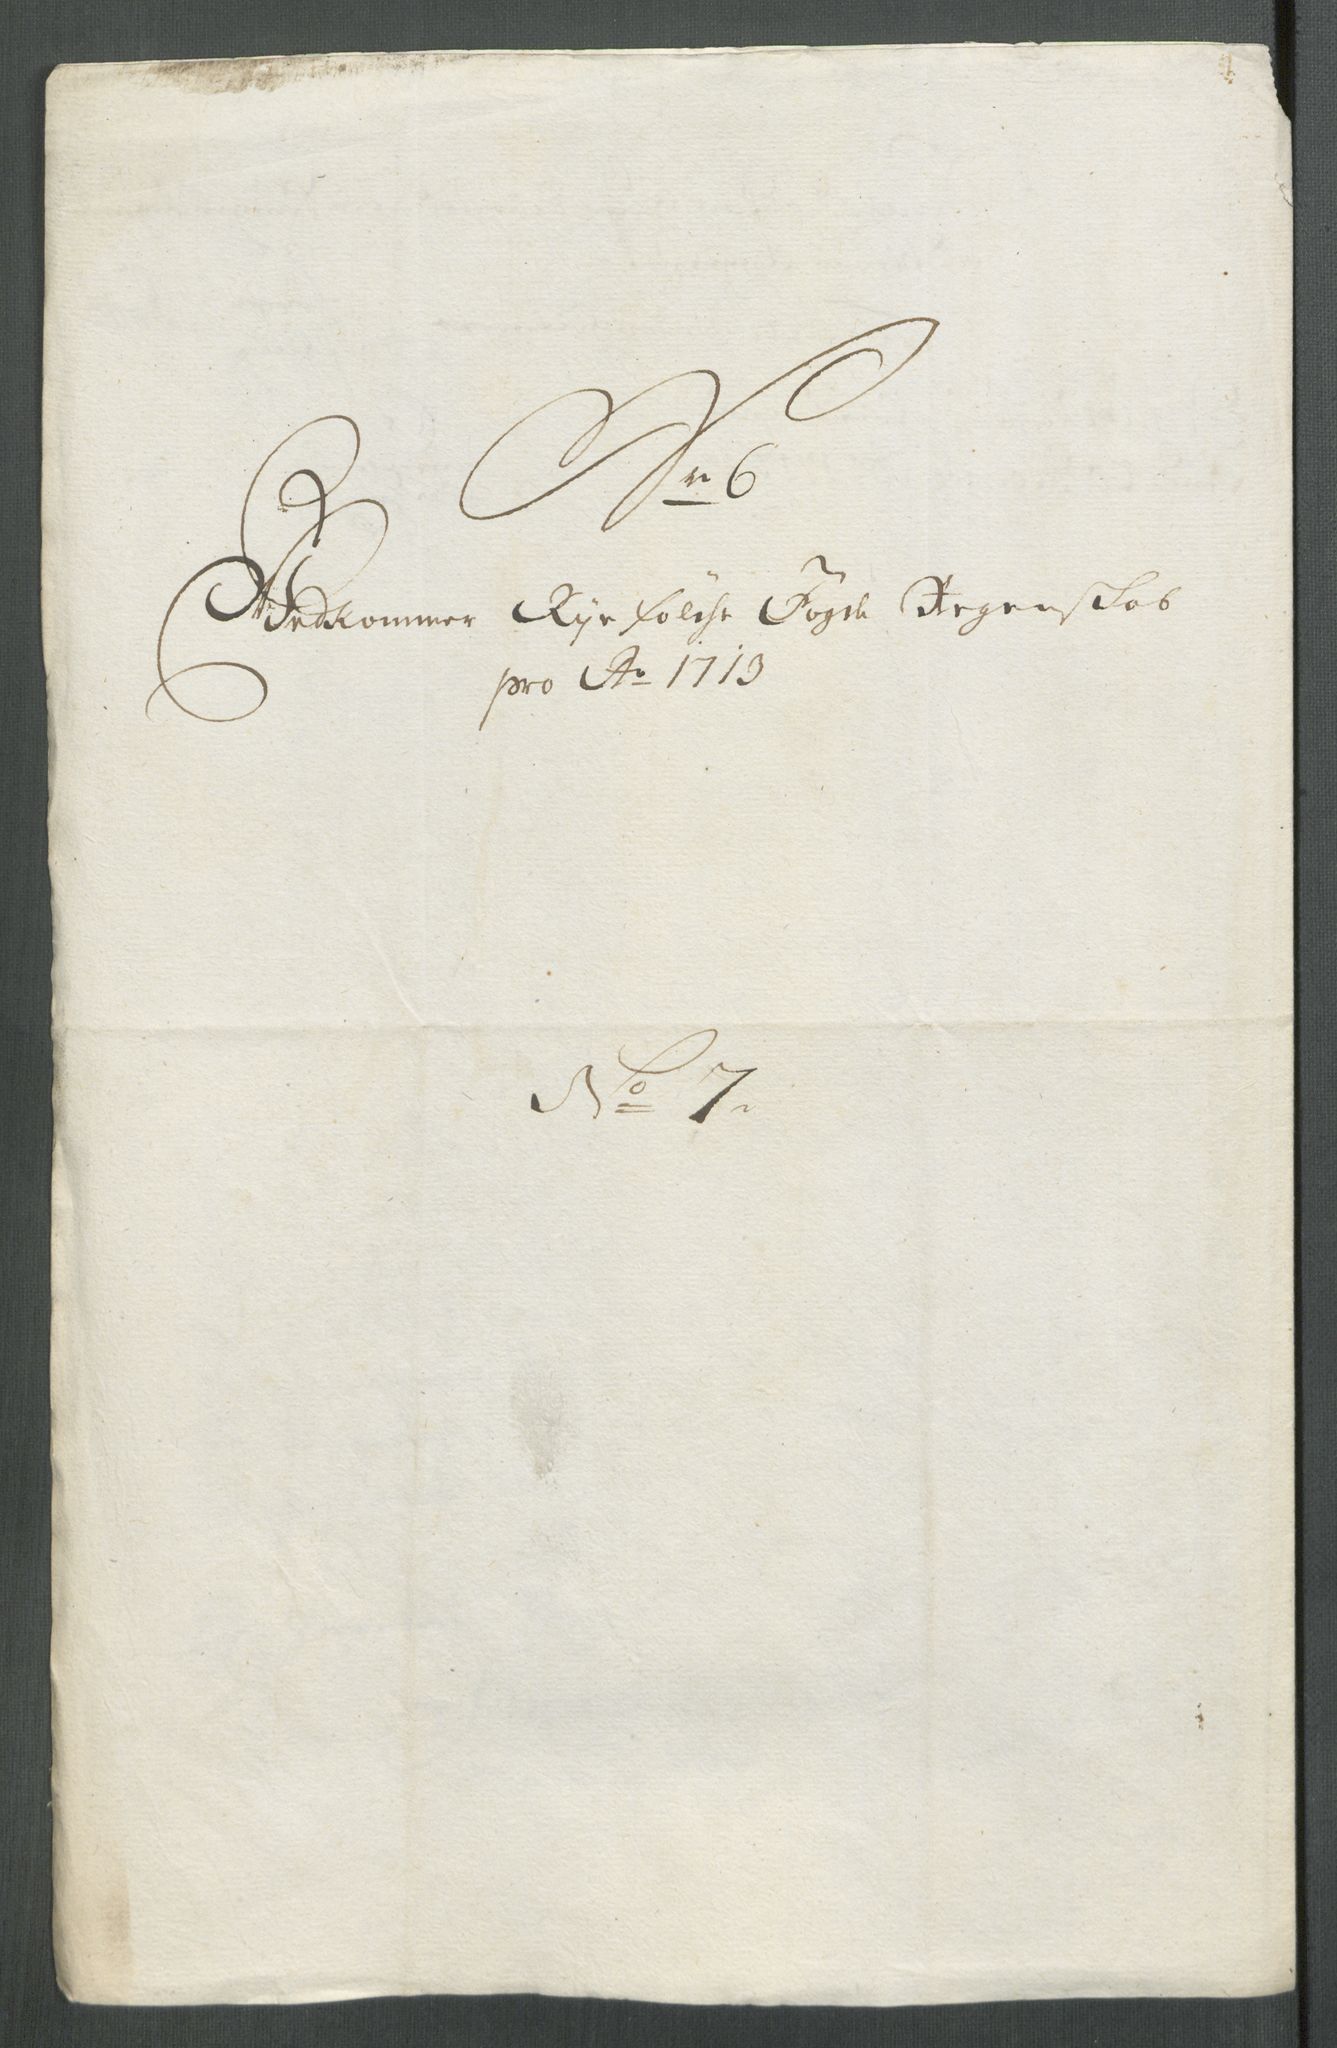 Nr 6
Vedkommer Ryefölche Fogde Regenskab
pro Ao 1713
No 7.